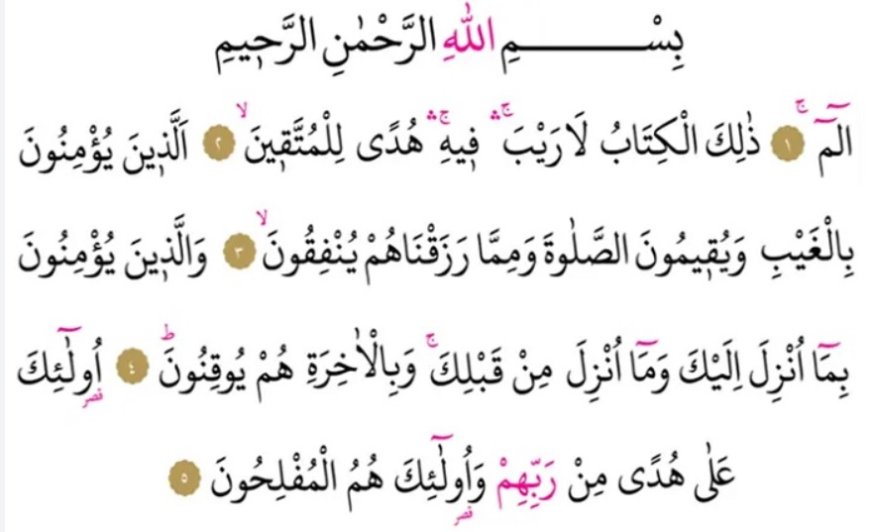 بِسْــــــــــــمِ اللّٰهِ الرَّحْمٰنِ الرَّح۪يمِ
الٓمٓ ۚ ﴿١﴾ ذٰلِكَ الْكِتَابُ لَا رَيْبَ ۚۛ ف۪يهِ ۚۛ هُدًى لِلْمُتَّق۪ينَ ۙ ﴿٢﴾ اَلَّذ۪ينَ يُؤْمِنُونَ
بِالْغَيْبِ وَيُق۪يمُونَ الصَّلٰوةَ وَمِمَّا رَزَقْنَاهُمْ يُنْفِقُونَ ۙ ﴿٣﴾ وَالَّذ۪ينَ يُؤْمِنُونَ
بِمَٓا اُنْزِلَ اِلَيْكَ وَمَٓا اُنْزِلَ مِنْ قَبْلِكَ ۚ وَبِالْاٰخِرَةِ هُمْ يُوقِنُونَ ۜ ﴿٤﴾ اُو۬لٰٓئِكَ قصر
عَلٰى هُدًى مِنْ رَبِّهِمْ وَاُو۬لٰٓئِكَ قصر هُمُ الْمُفْلِحُونَ ﴿٥﴾